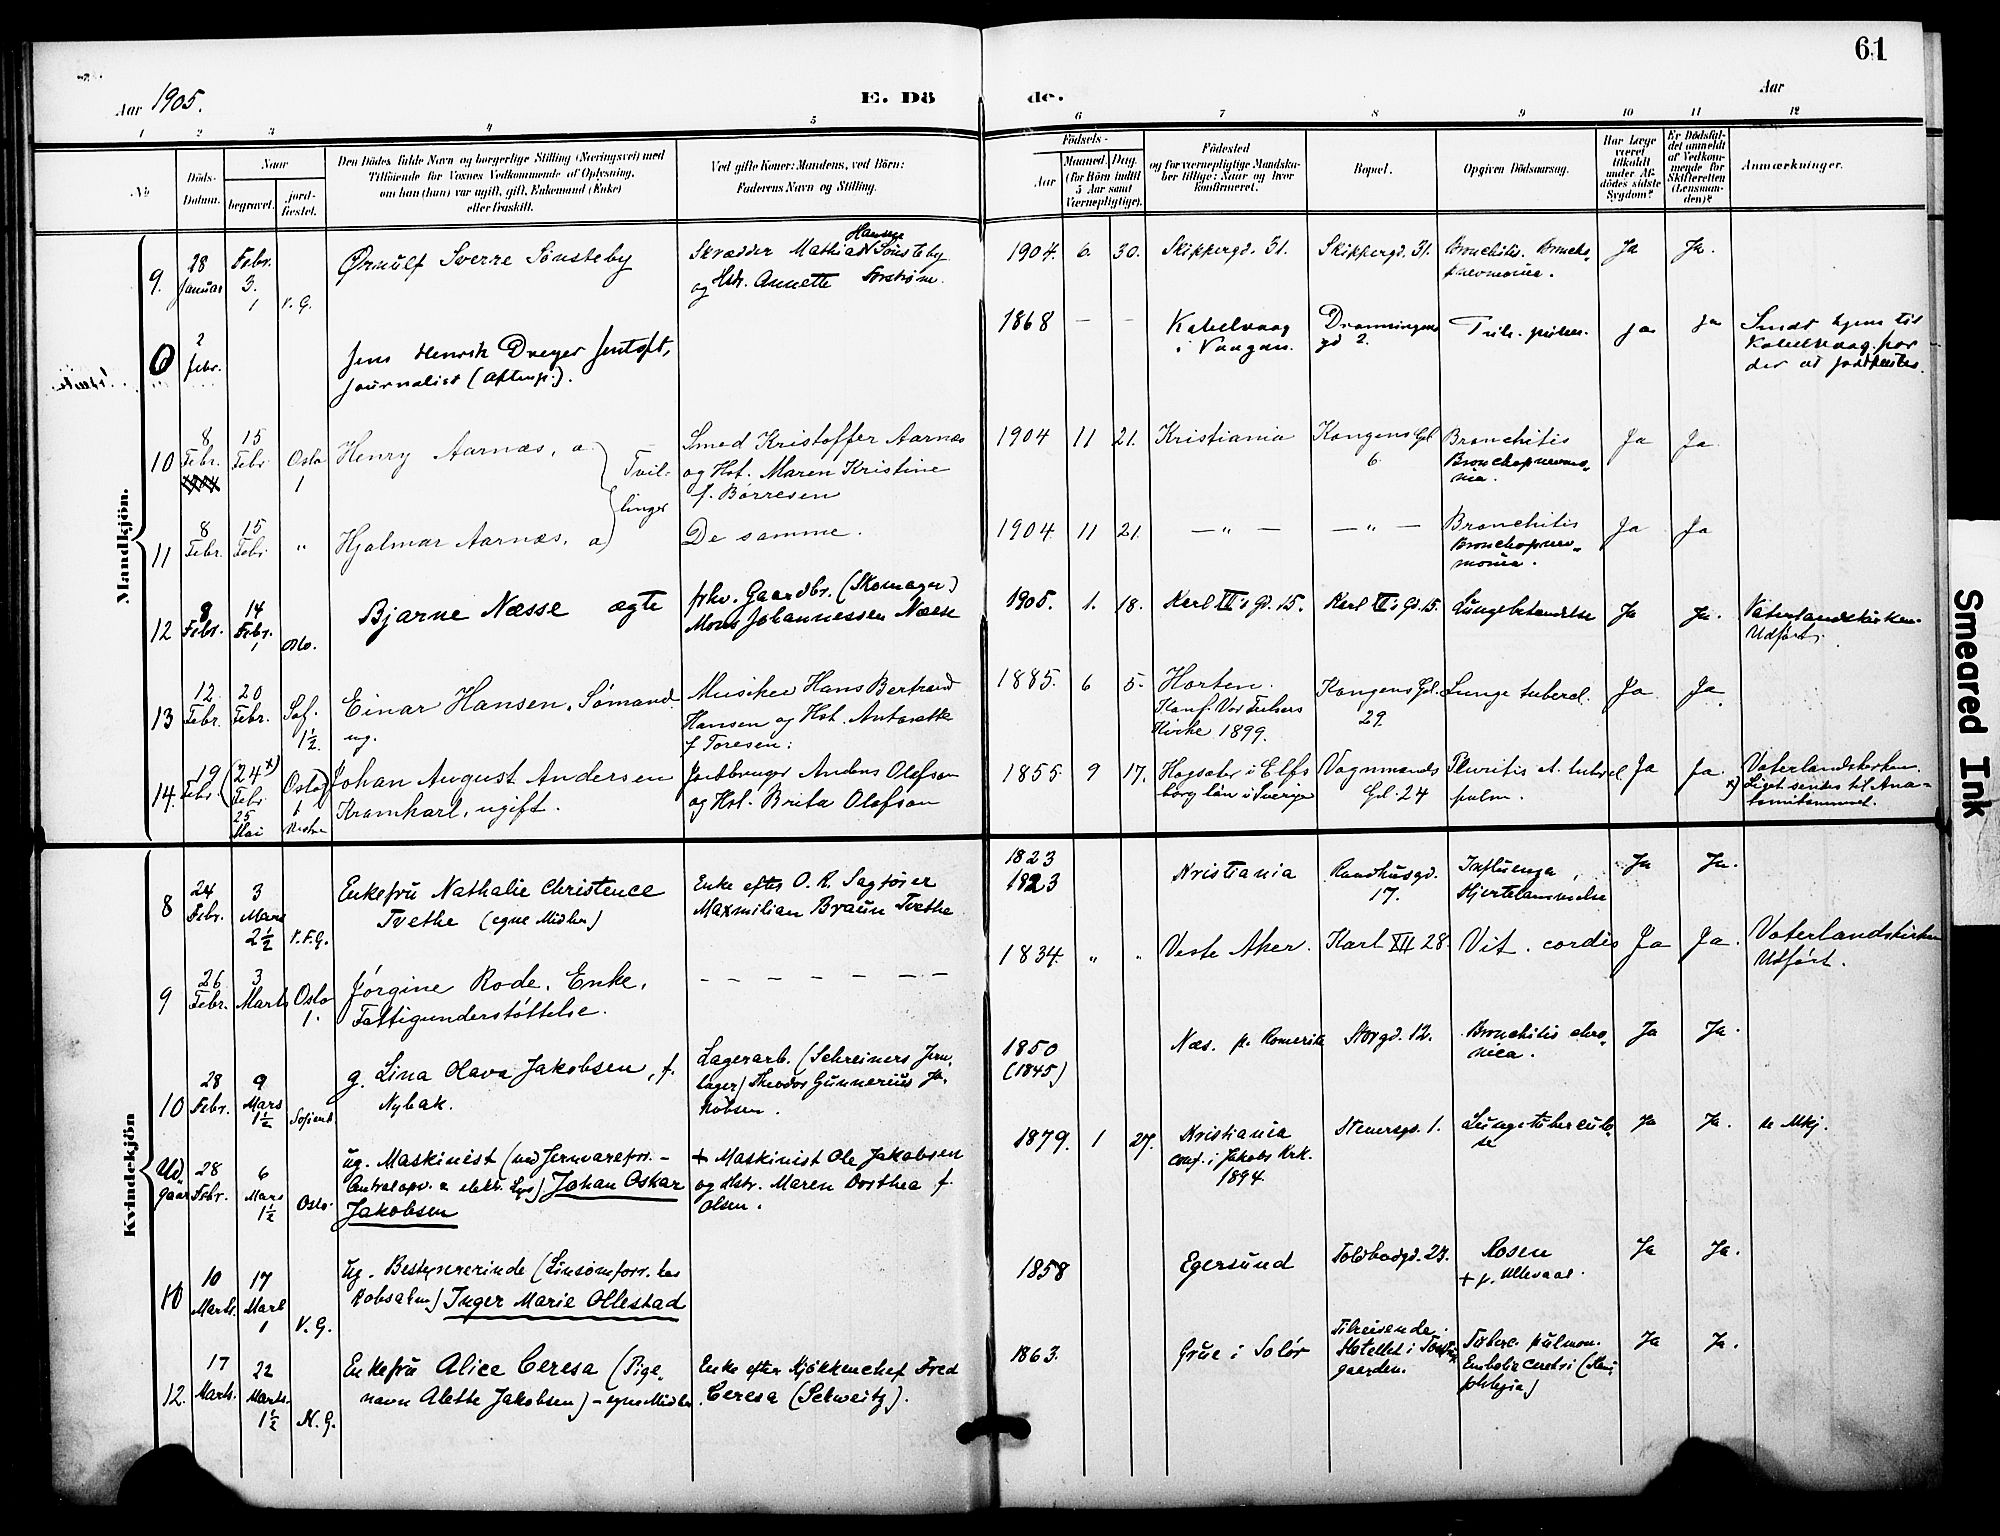 61
Aar 1905.
E. Dö
de.
Aar
1 2 3 4 5 6 7 8 9 10 11 12
No
Döds-
Datum.
Naar
begravet.
jord-
fæstet.
Den Dödes fulde Navn og borgerlige Stilling (Næringsvei) med
Tilföiende for Voxnes Vedkommende af Oplysning,
om han (hun) var ugift, gift, Enkemand (Enke)
eller fraskilt.
Ved gifte Koner: Mandens, ved Börn:
Faderens Navn og Stilling.
Födsels-
Aar
Maaned
Dag.
(for Börn indtil
5 Aar samt
Værnepligtige).
Födested
og for værnepligtige Mandska-
ber tillige: Naar og hvor
konfirmeret.
Bopæl.
Opgiven Dödsaarsag.
Har Læge
været
tilkaldt
under Af-
dödes sidste
Sygdom?
Er Dödsfal-
det anmeldt
af Vedkom-
mende for
Skifteretten
(Lensman-
den)?
Anmærkninger.
Mandkjön.
9.
28
Januar
Febr.
3.
1
V. G.
Ørnulf Sverre Sønsteby
Skrædder Mathias Hansen Sønsteby
og Hstr. Annette
1904. 6. 30. Skippergd. 31. Skippergd. 31. Bronchitis. Broncho-
pneumonie. Ja Ja.
0
2
Febr.
Jens Henrik Dreyer Jentoft,
journalist (Aftenp.).
1868 — — Kabelvaag
i Vaagan.
Dronningens
gd 2.
ja ja
Kabelvaag. for
der at jordfæstes.
10
8
Febr.
15
Febr
Oslo
1
Henry Aarnæs, a
Tvil-
linger
Smed Kristoffer Aarnæs
og Hst. Maren Kristine
f. Børresen
1904 11 21. Kristiania Kongens Gd.
6
Bronchitis
Bronchopneumo-
nia. Ja Ja
11
8
Febr.
15
Febr.
"
Hjalmar Aarnæs, a
De samme.
1904. 11 21. — " — — " — Bronchitis
Bronchopneu-
monia. Ja Ja
12
8
Febr.
14
Febr.
1
Oslo.
Bjarne Næsse ægte
fhv. Gaardbr. (Skomager)
Mons Johannessen Næsse
1905. 1. 18. Karl XII's Gd. 15. Karl XII's Gd. 15. Lungebetændelse Ja Ja. Vaterlandskirken
Udført.
13
12
Febr.
20
Febr.
Sof.
1½.
Einar Hansen, Sømand
ug.
Musiker Hans Bertrand
Hansen og Hst.
f Toresen.
1885. 6 5. Horten.
Konf. Vor Frelsers
Kirke 1899.
Kongens Gd.
29.
Lunge tubercl. Ja Ja.
14.
19
Febr
(24 x)
Febr
25
Mai
Oslo)
1
Johan August Andersen
Kramkarl, ugift.
Jordbruger Anders Olofson
og Hst. Brita Olofson
1855. 9 17. i Elfs
borg län i Sverige
Vognmands
Gd. 24
Pleuritis et. tubercl
pulm. Ja Ja. Vaterlandskirken.
x) Liget sendes til Ana-
tomikammeret.
Kvindekjön
8
24
Febr.
3
Mars
2½
V. F. G.
Enkefru Nathalie Christence
Tvethe (egne Midler)
Enke efter O. R. Sagfører
Maxmilian Braun Tvethe
1823
1823
Kristiania Raadhusgd.
17.
Influenza,
Hjertelammelse Ja Ja.
9
26
Febr.
3
Marts
Oslo
1.
Jørgine Rode. Enke.
Fattigunderstøttelse.
— — — — — — —
1834. " " Vestre Aker. Karl XII 28. Vit. cordis Ja Ja. Vaterlandskirken
Udført.
10
28
Febr.
9
Mars
1½
Sofienb.
g. Lina Olava Jakobsen, f.
Nybak.
Lagerarb. (Schreiners Jern-
lager) Theodor Gunnerius Ja-
kobsen.
1850
(1845)
Næs. p. Romerike Storgd. 12. Bronchitis chro-
nica. Ja Ja.
Ud-
gaar
28
Febr.
6
Mars
1½
Oslo.
ug. Maskinist (ved Jernvareforr. -
Centralopv. & elekt. Lys) Johan Oskar
Jakobsen
+ Maskinist Ole Jakobsen
og Hstr. Maren Dorthea f.
Olsen.
1879. 1 27. Kristiania
conf. i Jakobs Krk.
1894.
Stenersgd. 1. Lungetubercul-
se Ja Ja. se Mkj.
10
Marts.
17
Mars
1
V. G.
Ug. Bestyrerinde (Linsømforr. hos
Robsahm) Inger Marie Ollestad
1858 Egersund Toldbodgd. 27. Rosen
+ p. Ullevaal. Ja Ja.
12.
17
Marts.
22
Marts.
1½
N. G.
Enkefru Alice Ceresa (Pige-
navn Alette Jakobsen) – egne Midler
Enke efter Kjøkkenchef Fred
Ceresa (Schweitz).
1863. Grue i Solør Tilreisende.
Hotellet i
gaarden.
Tuberc. pulmon.
Embolia cerebri (Hemi-
phlegia) Ja Ja.
Smeared Ink